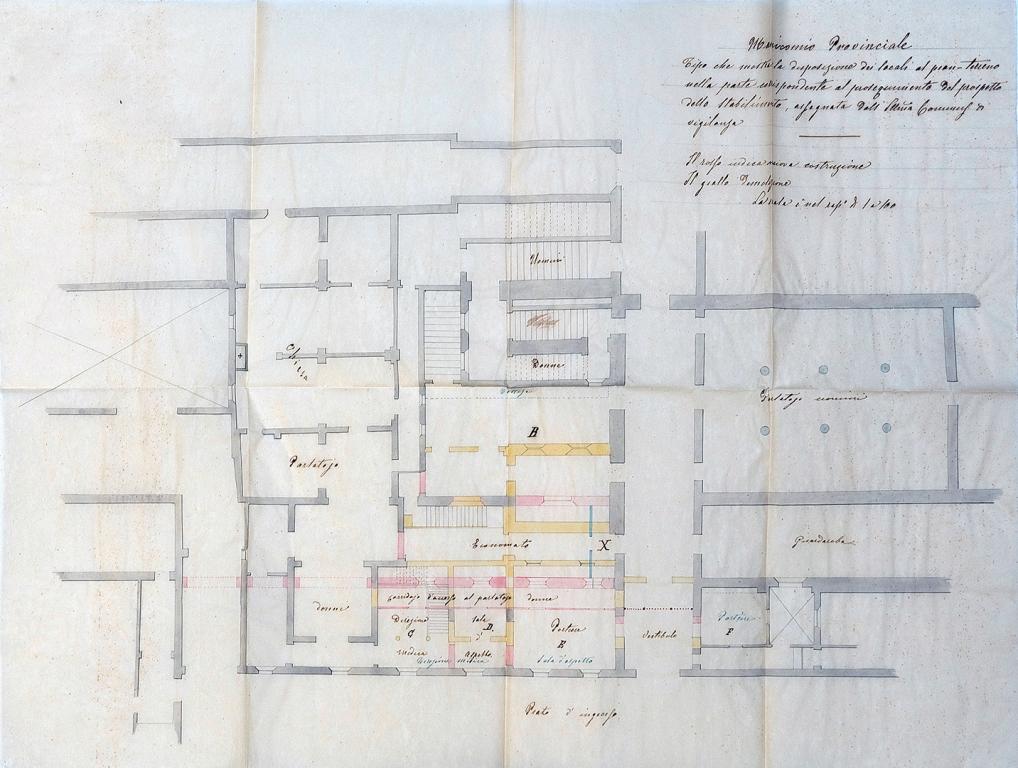 Manicomio Provinciale
Tipo che mostra la disposizione dei locali al pian-terreno
nella parte corrispondente al proseguimento del prospetto
dello Stabilimento, assegnata dall' Illma Commiss di
vigilanza
Il rosso indica nuova costruzione
Il giallo Demolizione
La nata è nel rapo di 1 a 100
Uomini
Donne
Chiesa
B
Parlatojo uomini
Parlatojo
Economato
X
Guardaroba
donne
Corridojo d'accesso al parlatojo donne
Direzione
C
medica
Direzione medica
Sala
D
d'
aspetto
Portiere
E
Sala d'aspetto
Vestibolo
Portiere
F
Prato d'ingresso